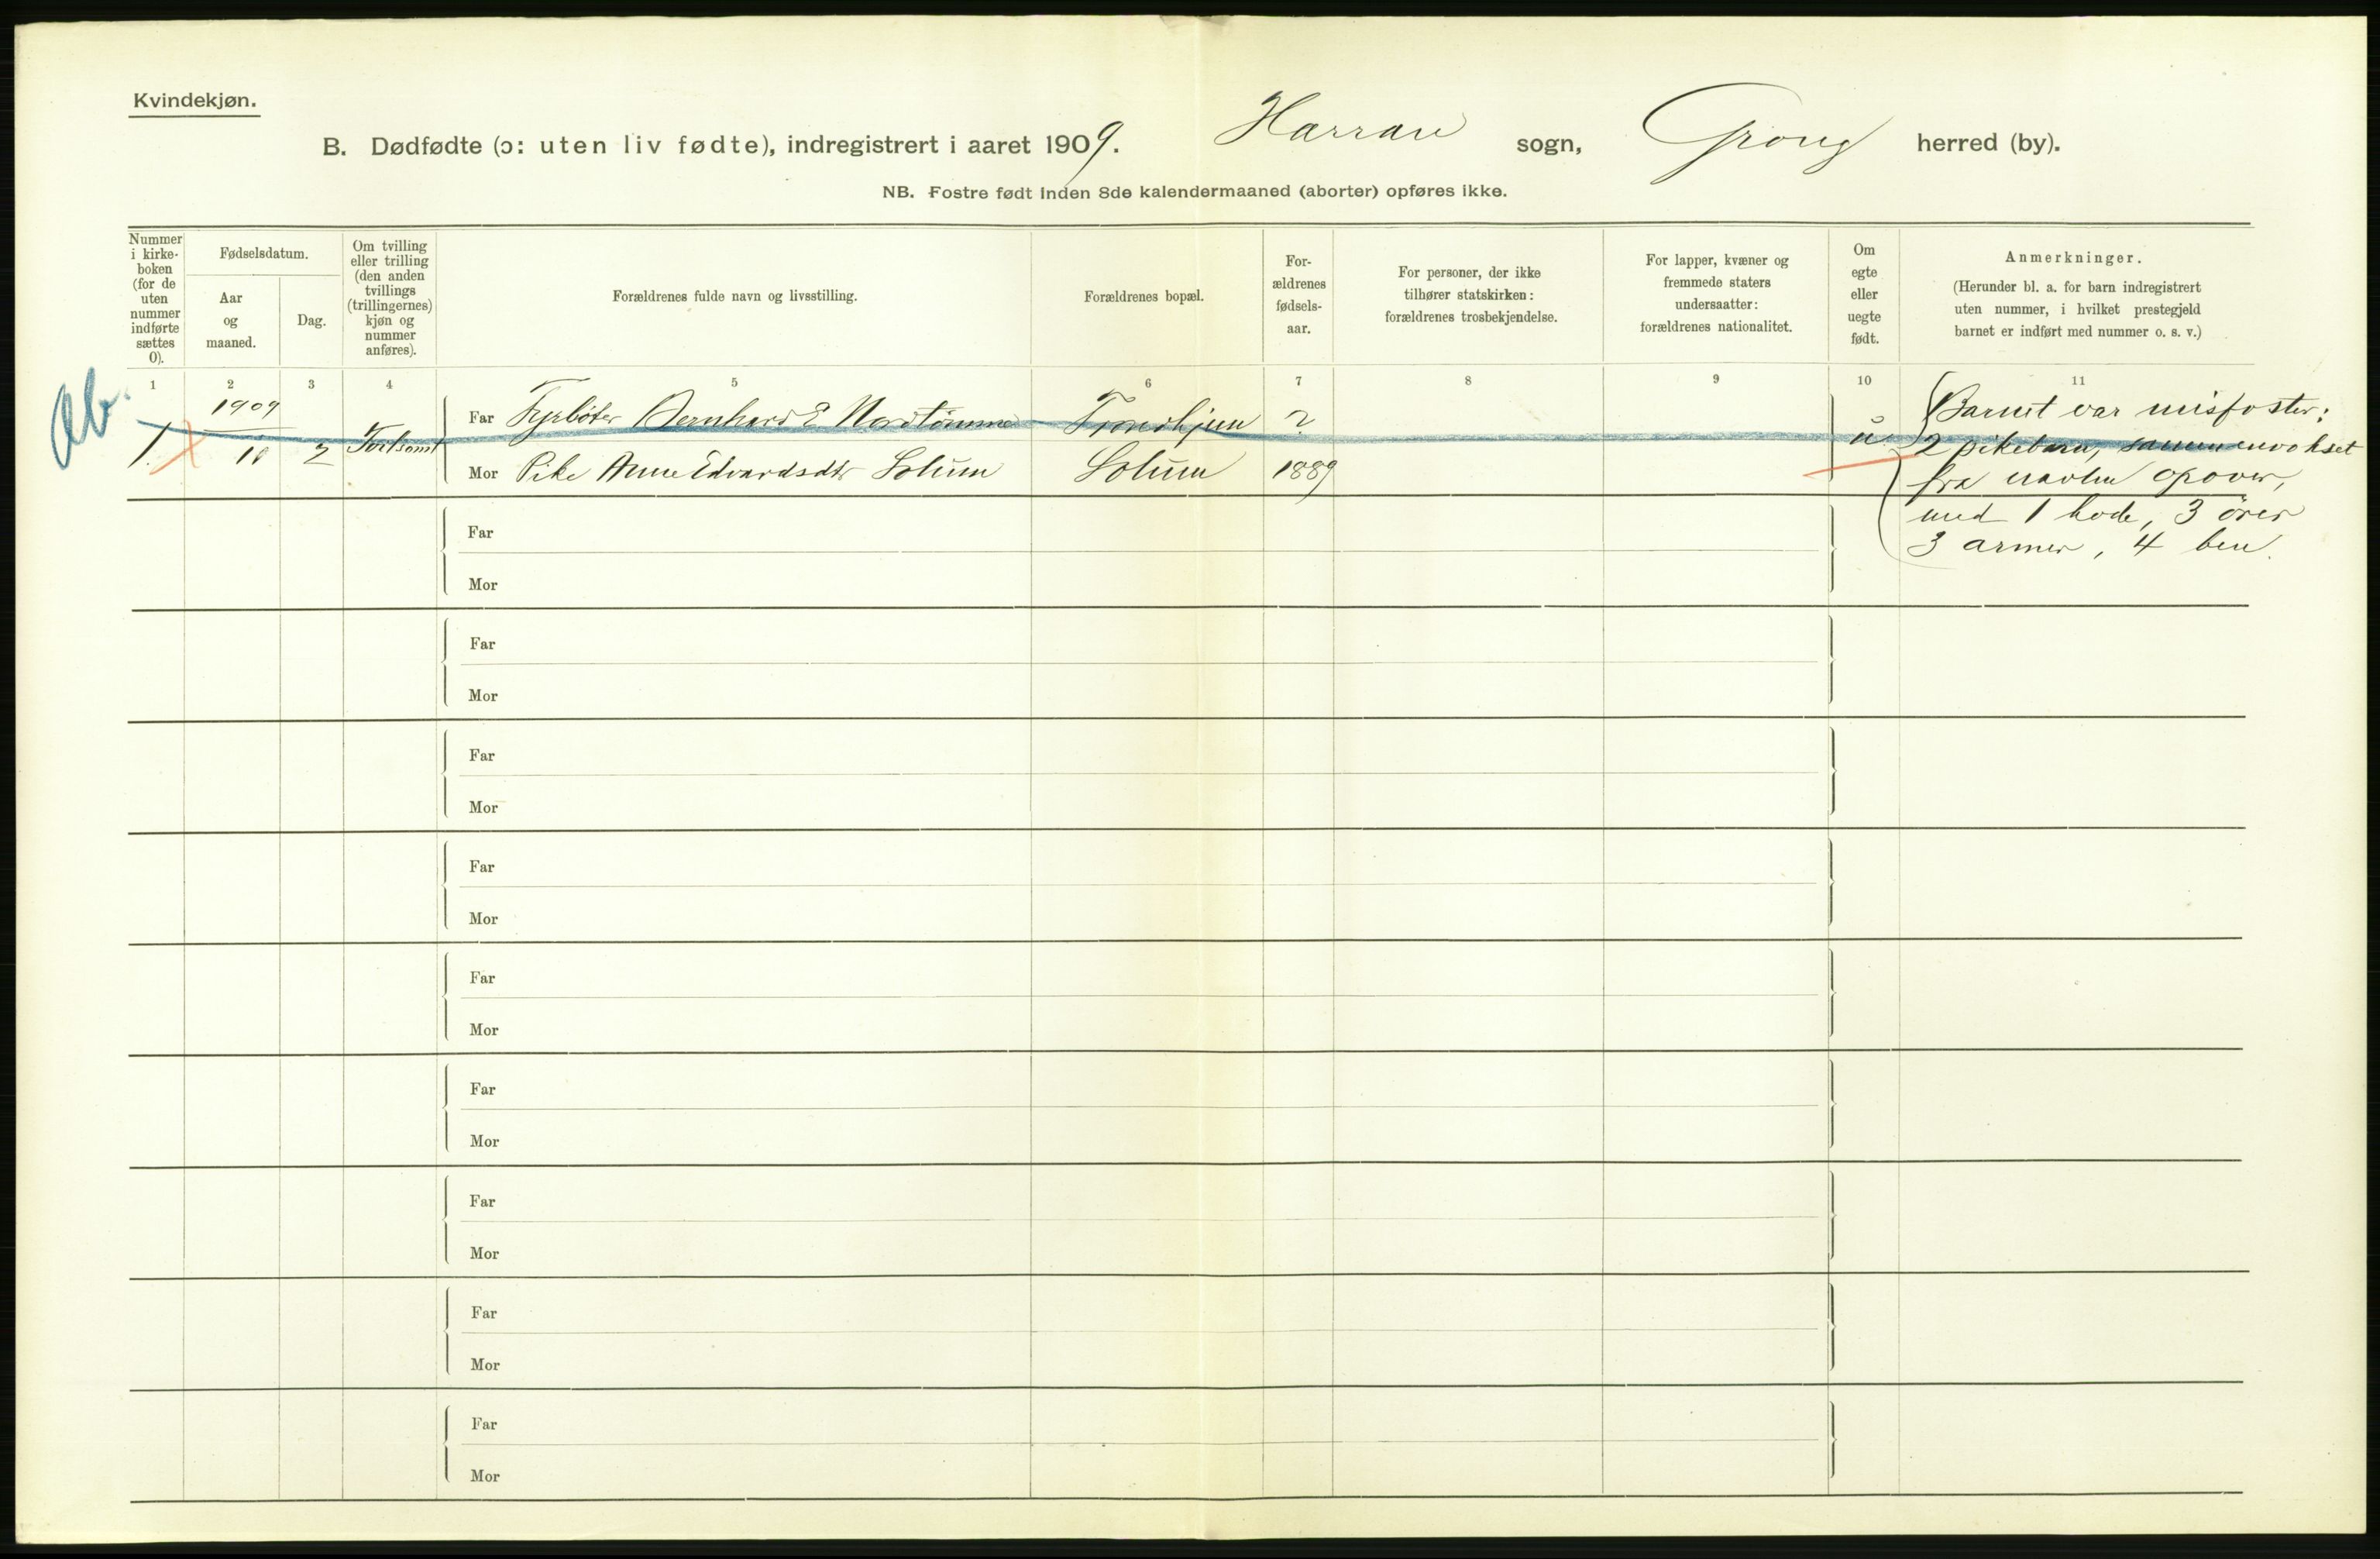 Kvindekjøn.
B. Dødfødte (ɔ: uten liv fødte), indregistrert i aaret 1909. Harran sogn, Grong herred (by).
NB. Fostre født inden 8de kalendermaaned (aborter) opføres ikke.
Nummer
i kirke-
boken
(for de
uten
nummer
indførte
sættes
0).
Fødselsdatum.
Aar
og
maaned.
Dag.
Om tvilling
eller trilling
(den anden
tvillings
(trillingernes)
kjøn og
nummer
anføres).
Forældrenes fulde navn og livsstilling.
Forældrenes bopæl.
For-
ældrenes
fødsels-
aar.
For personer, der ikke
tilhører statskirken:
forældrenes trosbekjendelse.
For lapper, kvæner og
fremmede staters
undersaatter:
forældrenes nationalitet.
Om
egte
eller
uegte
født.
Anmerkninger.
(Herunder bl. a. for barn indregistrert
uten nummer, i hvilket prestegjeld
barnet er indført med nummer o. s. v.)
1 2 3 4 5 6 7 8 9 10 11
ab.
1909
Far Fyrbøter Bernhard E Nordtømme Trondhjem ?
1. 10 2 u.
Mor Pike Anne Edvardsdtr Solum Solum 1889
Barnet var misfoster:
2 pikebarn, sammenvokset
fra navlen opover,
med 1 hode, 3 ører
3 armer, 4 ben.
Far
Mor
Far
Mor
Far
Mor
Far
Mor
Far
Mor
Far
Mor
Far
Mor
Far
Mor
Far
Mor